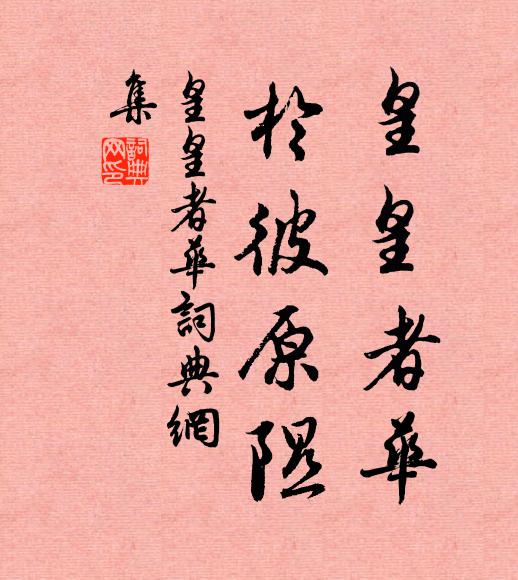 皇皇者華
於彼原隰
皇皇者華詞典網
集
詞典
网印